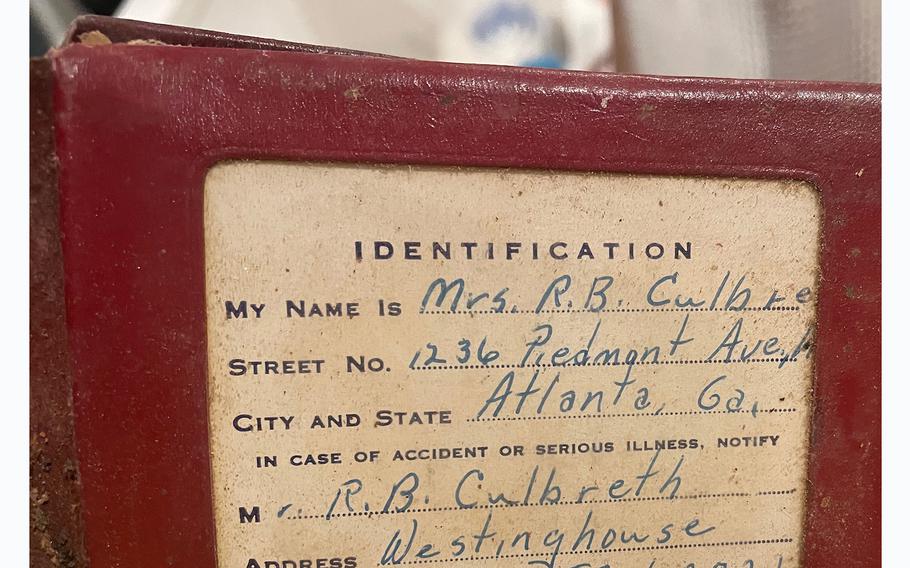 IDENTIFICATION
MY NAME IS Mrs. R.B. Culbre
STREET NO. 1236 Piedmont Ave.,
CITY AND STATE Atlanta, Ga.
IN CASE OF ACCIDENT OR SERIOUS ILLNESS, NOTIFY
Mr. R.B. Culbreth
ADDRESS Westinghouse